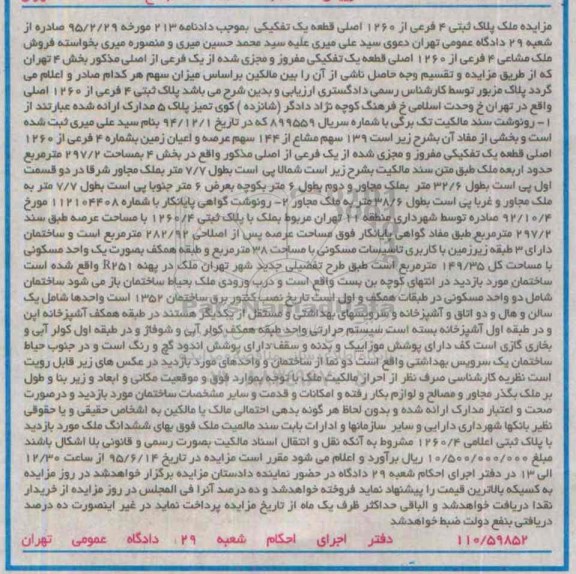 مزایده ملک پلاک ثبتی ۴ فرعی از ۱۲۶۰ اصلی قطعه یک تفکیکی بموجب دادنامه ۲۱۳ مورخه ۹۵/۲/۲۹ صادره از
شعبه ۲۹ دادگاه عمومی تهران دعوی سید علی میری علیه سید محمد حسین میری و منصوره میری بخواسته فروش
ملک مشاعی ۴ فرعی از ۱۲۶۰ اصلی قطعه یک تفکیکی مفروز و مجزی شده از یک فرعی از اصلی مذکور بخش ۴ تهران
که از طریق مزایده و تقسیم وجه حاصل ناشی از آن را بین مالکین براساس میزان سهم هر کدام صادر و اعلام می
گردد پلاک مزبور توسط کارشناس رسمی دادگستری ارزیابی و بدین شرح می باشد پلاک ثبتی ۴ فرعی از ۱۲۶۰ اصلی
واقع در تهران خ وحدت اسلامی خ فرهنگ کوچه نژاد دادگر (شانزده ) کوی تمیز پلاک ۵ مدارک ارائه شده عبارتند از
۱- رونوشت سند مالکیت تک برگی با شماره سریال ۸۹۹۵۵۹ که در تاریخ ۹۴/۱۲/۱ بنام سید علی میری ثبت شده
است و بخشی از مفاد آن بشرح زیر است ۱۳۹ سهم مشاع از ۱۴۴ سهم عرصه و اعیان زمین بشماره ۴ فرعی از ۱۲۶۰
اصلی قطعه یک تفکیکی مفروز و مجزی شده از یک فرعی از اصلی مذکور واقع در بخش ۴ بمساحت ۲۹۷/۲ مترمربع
حدود اربعه ملک طبق متن سند مالکیت بشرح زیر است شمالا پی است بطول ۷/۷ متر بملک مجاور شرقا در دو قسمت
اول پی است بطول ۳۲/۶ متر بملک مجاور و دوم بطول ۶ متر بکوچه بعرض ۶ متر جنوبا پی است بطول ۷/۷ متر به
ملک مجاور و غربا پی است بطول ۳۸/۶ متر به ملک مجاور ۲- رونوشت گواهی پایانکار با شماره ۱۱۲۱۰۴۴۰۸ مورخ
۹۲/۱۰/۴ صادره توسط شهرداری منطقه تهران مربوط بملک با پلاک ثبتی ۱۲۶۰/۴ با مساحت عرصه طبق سند
۲۹۷/۲ مترمربع طبق مفاد گواهی پایانکار فوق مساحت عرصه پس از اصلاحی ۲۸۲/۹۲ مترمربع است و ساختمان
دارای ۳ طبقه زیرزمین با کاربری تاسیسات مسکونی با مساحت ۳۸ مترمربع و طبقه همکف بصورت یک واحد مسکونی
با مساحت کل ۱۴۹/۳۵ مترمربع است طبق طرح تفضیلی جدید شهر تهران ملک در پهنه R۲۵۱ واقع شده است
ساختمان مورد بازدید در انتهای کوچه بن بست واقع است و درب ورودی ملک بحیاط ساختمان باز می شود ساختمان
شامل دو واحد مسکونی در طبقات همکف و اول است تاریخ نصب کنتور برق ساختمان ۱۳۵۲ است واحدها شامل یک
سالن و هال و دو اتاق و آشپزخانه و سرویسهای بهداشتی و مستقل از یکدیگر هستند در طبقه همکف آشپزخانه اپن
و در طبقه اول آشپزخانه بسته است سیستم حرارتی واحد طبقه همکف کولر آبی و شوفاژ و در طبقه اول کولر آبی و
بخاری گازی است کف دارای پوشش موزاییک و بدنه و سقف دارای پوشش اندود گچ و رنگ است و در جنوب حیاط
ساختمان یک سرویس بهداشتی واقع است دو نما از ساختمان و واحدهای مورد بازدید در عکس های زیر قابل رویت
است نظریه کارشناسی صرف نظر از احراز مالکیت ملک با توجه بموارد فوق و موقعیت مکانی و ابعاد و زیر بنا و طول
بر ملک بگذر مجاور و مصالح و لوازم بکار رفته و امکانات و قدمت و سایر مشخصات ساختمان مورد بازدید و درصورت
صحت و اعتبار مدارک ارائه شده و بدون لحاظ هر گونه بدهی احتمالی مالک یا مالکین به اشخاص حقیقی و یا حقوقی
نظیر بانکها شهرداری دارایی و سایر سازمانها و ادارات بابت سند مالمیت ملک فوق بهای ششدانگ ملک مورد بازدید
با پلاک ثبتی اعلامی ۱۲۶۰/۴ مشروط به آنکه نقل و انتقال اسناد مالکیت بصورت رسمی و قانونی بلا اشکال باشند
مبلغ ۱۰/۵۰۰/۰۰۰/۰۰۰ ریال برآورد و اعلام می شود مقرر است مزایده در تاریخ ۹۵/۶/۱۴ از ساعت ۱۲/۳۰
الی ۱۳ در دفتر اجرای احکام شعبه ۲۹ دادگاه در حضور نماینده دادستان مزایده برگزار خواهدشد در روز مزایده
به کسیکه بالاترین قیمت را پیشنهاد نماید فروخته خواهدشد و ده درصد آنرا فی المجلس در روز مزایده از خریدار
نقدا دریافت خواهدشد و الباقی حداکثر ظرف یک ماه از تاریخ مزایده پرداخت نماید در غیر اینصورت ده درصد
دریافتی بنفع دولت ضبط خواهدشد
۱۱۰/۵۹۸۵۲ دفتر اجرای احکام شعبه ۲۹ دادگاه عمومی تهران